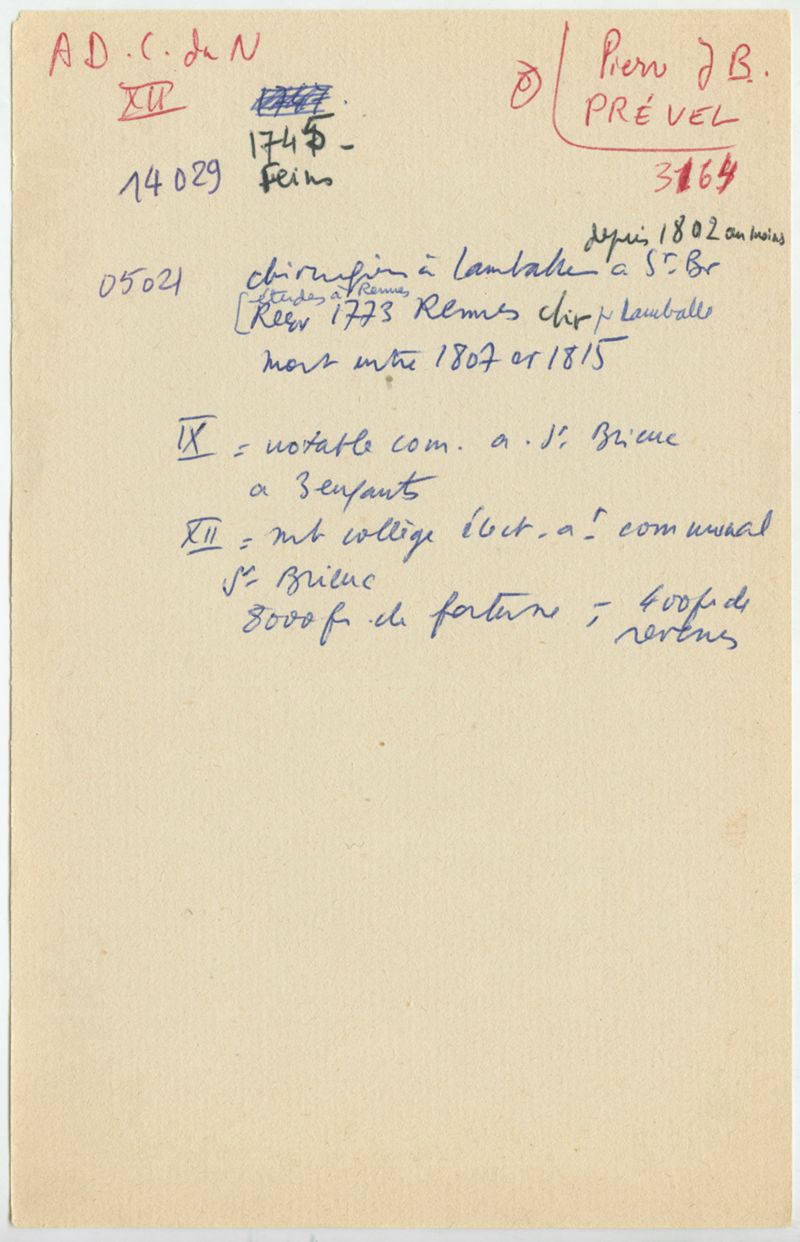 A D . C. du N
Pierre J B.
XII
PRÉVEL
1745 -
14 029 Feins
3164
depuis 1802 au moins
05021 chirurgien à Lamballe a St Br
études à Rennes
[Reçu 1773 Rennes chir pr Lamballe
mort entre 1807 et 1815
IX = notable com. a . St Brieuc
a 3 enfants
XII = mb collège élect. at communal
St Brieuc
8000 fr de fortune = 400 fr de
revenus